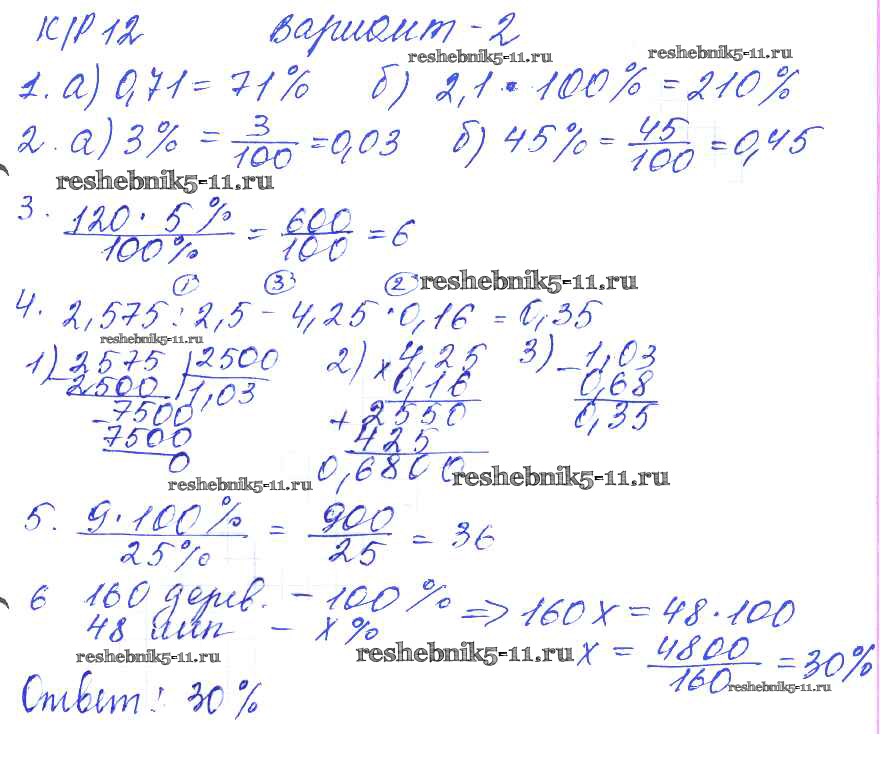 К/Р 12 вариант - 2
reshebnik5-11.ru reshebnik5-11.ru
1. а) 0,71 = 71% б) 2,1 · 100% = 210%
2. а) 3% = 3/100 = 0,03 б) 45% = 45/100 = 0,45
reshebnik5-11.ru
3. 120 · 5% / 100% = 600/100 = 6
1 3 2 reshebnik5-11.ru
4. 2,575 : 2,5 - 4,25 · 0,16 = 0,35
reshebnik5-11.ru
1) 2575 | 2500 2) × 4,25 3) - 1,03
- 2500 | 1,03 0,16 0,68
- 7500 + 2550 0,35
7500 425
0 0,6800
reshebnik5-11.ru reshebnik5-11.ru
5. 9 · 100% / 25% = 900/25 = 36
6 160 дерев. - 100% => 160 х = 48 · 100
48 лип - х%
reshebnik5-11.ru reshebnik5-11.ru х = 4800/160 = 30%
reshebnik5-11.ru
Ответ: 30%